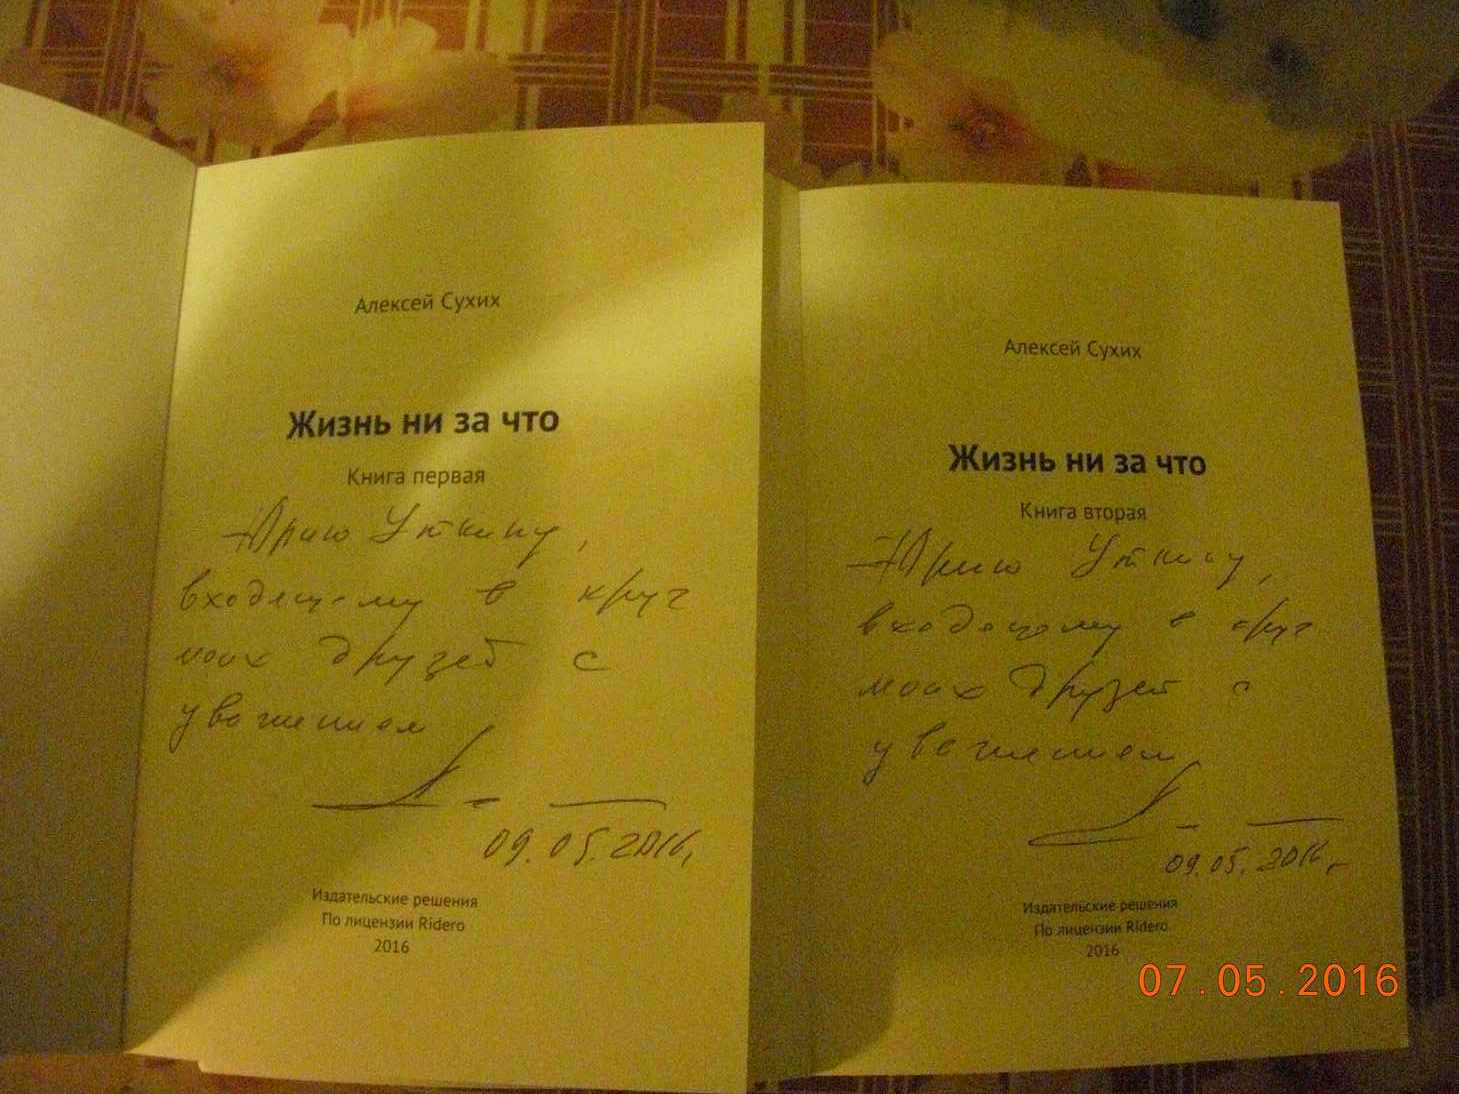 Алексей Сухих
Жизнь ни за что
Книга первая
Юрию Уткину,
входящему в круг
моих друзей с
уважением
09.05.2016,
Издательские решения
По лицензии Ridero
2016
Алексей Сухих
Жизнь ни за что
Книга вторая
Юрию Уткину,
входящему в круг
моих друзей с
уважением
09.05.2016,
Издательские решения
По лицензии Ridero
2016
07.05.2016